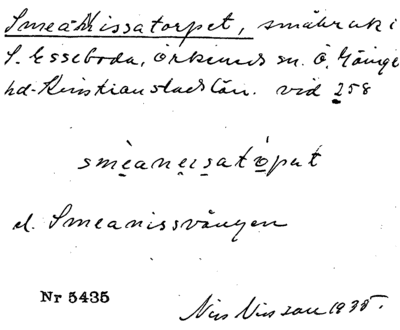 SmeaNissatorpet, småbruk i
S. Esseboda, Örkeneds sn. Ö. Göinge
hd. Kristianstads län. vid 258
smèanisatòpat
el. Smeanissvången
Nr 5435
Nils Nilsson 1935.